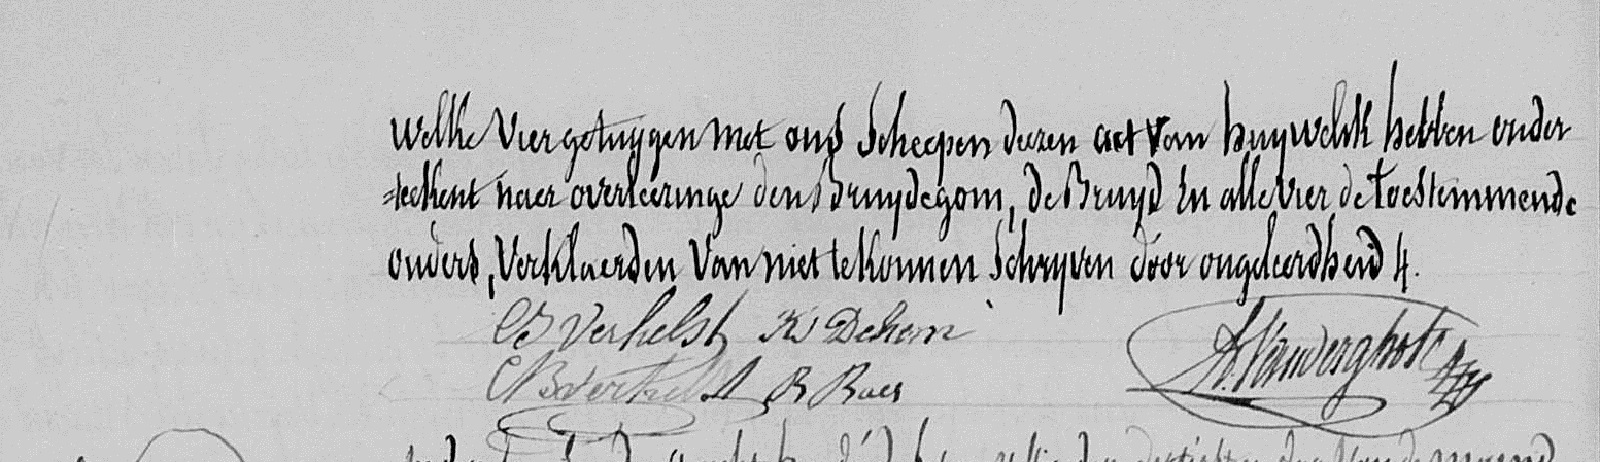 Welke Vier getuygen met ons Scheepen deezen act van huywelk hebben onder
=teekent naer overleezinge den Bruydegom, de Bruyd En alle vier de toestemmende
ouders, Verklaerden Van niet te konnen Schryven door ongeleerdheid 4.
Verhelst K Dehem
Verhelst B Baes